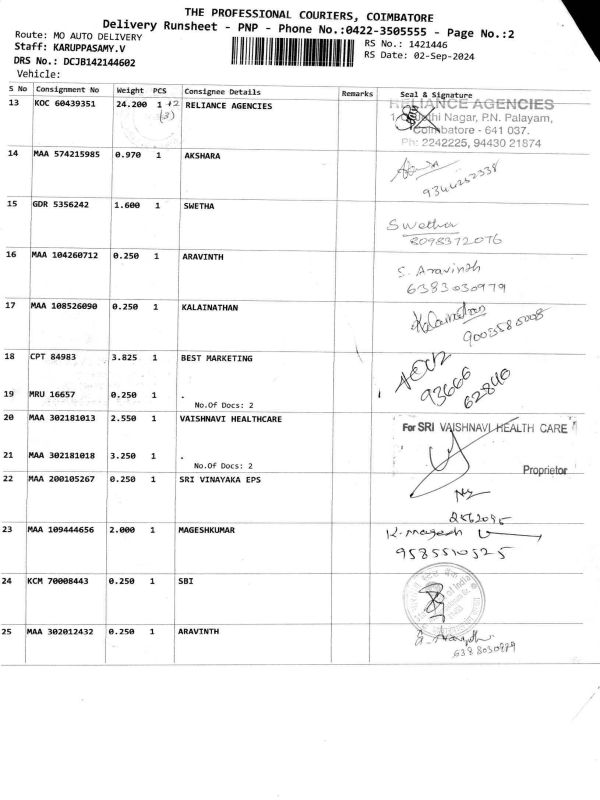 THE PROFESSIONAL COURIERS, COIMBATORE
Delivery Runsheet - PNP - Phone No.:0422-3505555 - Page No.:2
Route: MO AUTO DELIVERY
RS No.: 1421446
Staff: KARUPPASAMY.V
RS Date: 02-Sep-2024
DRS No.: DCJB142144602
Vehicle:
S No Consignment No Weight PCS Consignee Details Remarks Seal & Signature
13 KOC 60439351 24.200 1 +2 RELIANCE AGENCIES
(3)
RELIANCE AGENCIES
Nagar, P.N. Palayam,
Coimbatore - 641 037.
Ph: 2242225, 94430 21874
14 MAA 574215985 0.970 1 AKSHARA
9344252338
15 GDR 5356242 1.600 1 SWETHA
Swetha
8098372076
16 MAA 104260712 0.250 1 ARAVINTH
S. Aravinth
6383030979
17 MAA 108526090 0.250 1 KALAINATHAN
Kalainathan
9003585008
18 CPT 84983 3.825 1 BEST MARKETING
93666
62840
19 MRU 16657 0.250 1 .
No.Of Docs: 2
20 MAA 302181013 2.550 1 VAISHNAVI HEALTHCARE
For SRI VAISHNAVI HEALTH CARE
21 MAA 302181018 3.250 1 .
No.Of Docs: 2
Proprietor
22 MAA 200105267 0.250 1 SRI VINAYAKA EPS
2562095
23 MAA 109444656 2.000 1 MAGESHKUMAR
K. magesh
9585510525
24 KCM 70008443 0.250 1 SBI
25 MAA 302012432 0.250 1 ARAVINTH